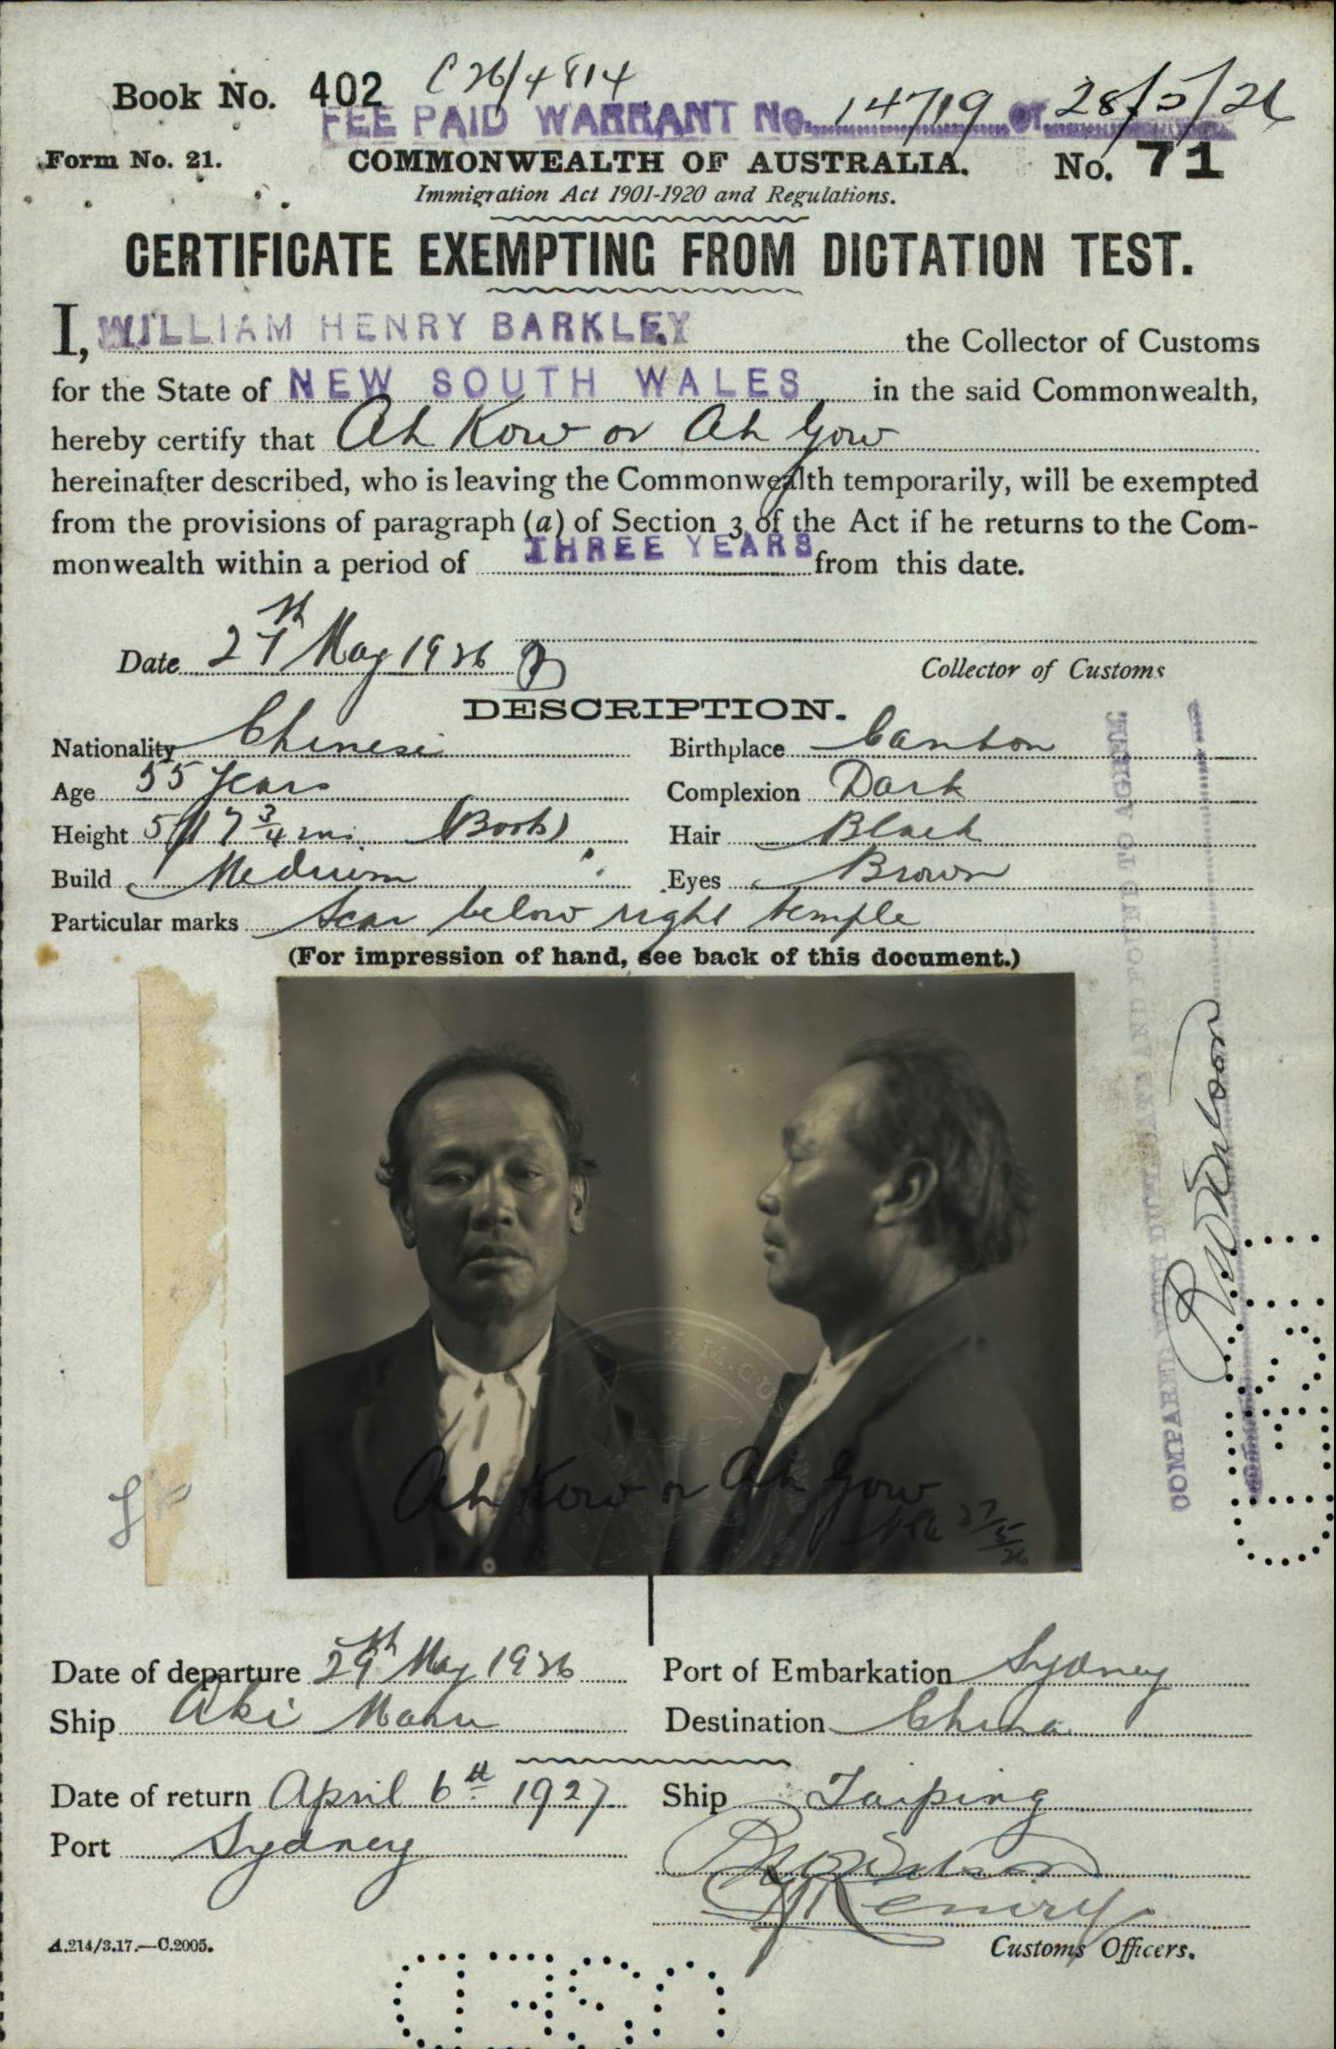 Book No. 402 C 26/4814
FEE PAID WARRANT No. 14719 of 28/5/26
Form No. 21. COMMONWEALTH OF AUSTRALIA. No. 71
Immigration Act 1901-1920 and Regulations.
CERTIFICATE EXEMPTING FROM DICTATION TEST.
I, WILLIAM HENRY BARKLEY the Collector of Customs
for the State of NEW SOUTH WALES in the said Commonwealth,
hereby certify that Ah Kow or Ah Gow
hereinafter described, who is leaving the Commonwealth temporarily, will be exempted
from the provisions of paragraph (a) of Section 3 of the Act if he returns to the Com-
monwealth within a period of THREE YEARS from this date.
Date 27th May 1926
Collector of Customs
DESCRIPTION.
Nationality Chinese Birthplace Canton
Age 55 Years Complexion Dark
Height 5ft 7 3/4 ins. (Boots) Hair Black
Build Medium Eyes Brown
Particular marks Scar below right temple
(For impression of hand, see back of this document.)
COMPARED WITH DUPLICATE AND FOUND TO AGREE
H.M. CUS
Ah Kow or Ah Gow
27/5/26
Date of departure 29th May 1926 Port of Embarkation Sydney
Ship Aki Maru Destination China
Date of return April 6th 1927 Ship Taiping
Port Sydney
Customs Officers.
A.214/3.17.—C.2005.
USED